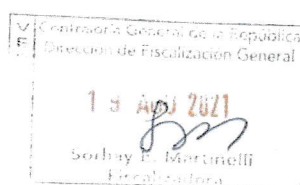 Contraloría General de la República
Dirección de Fiscalización General
19 AGO 2021
Martinelli
Fiscalizadora